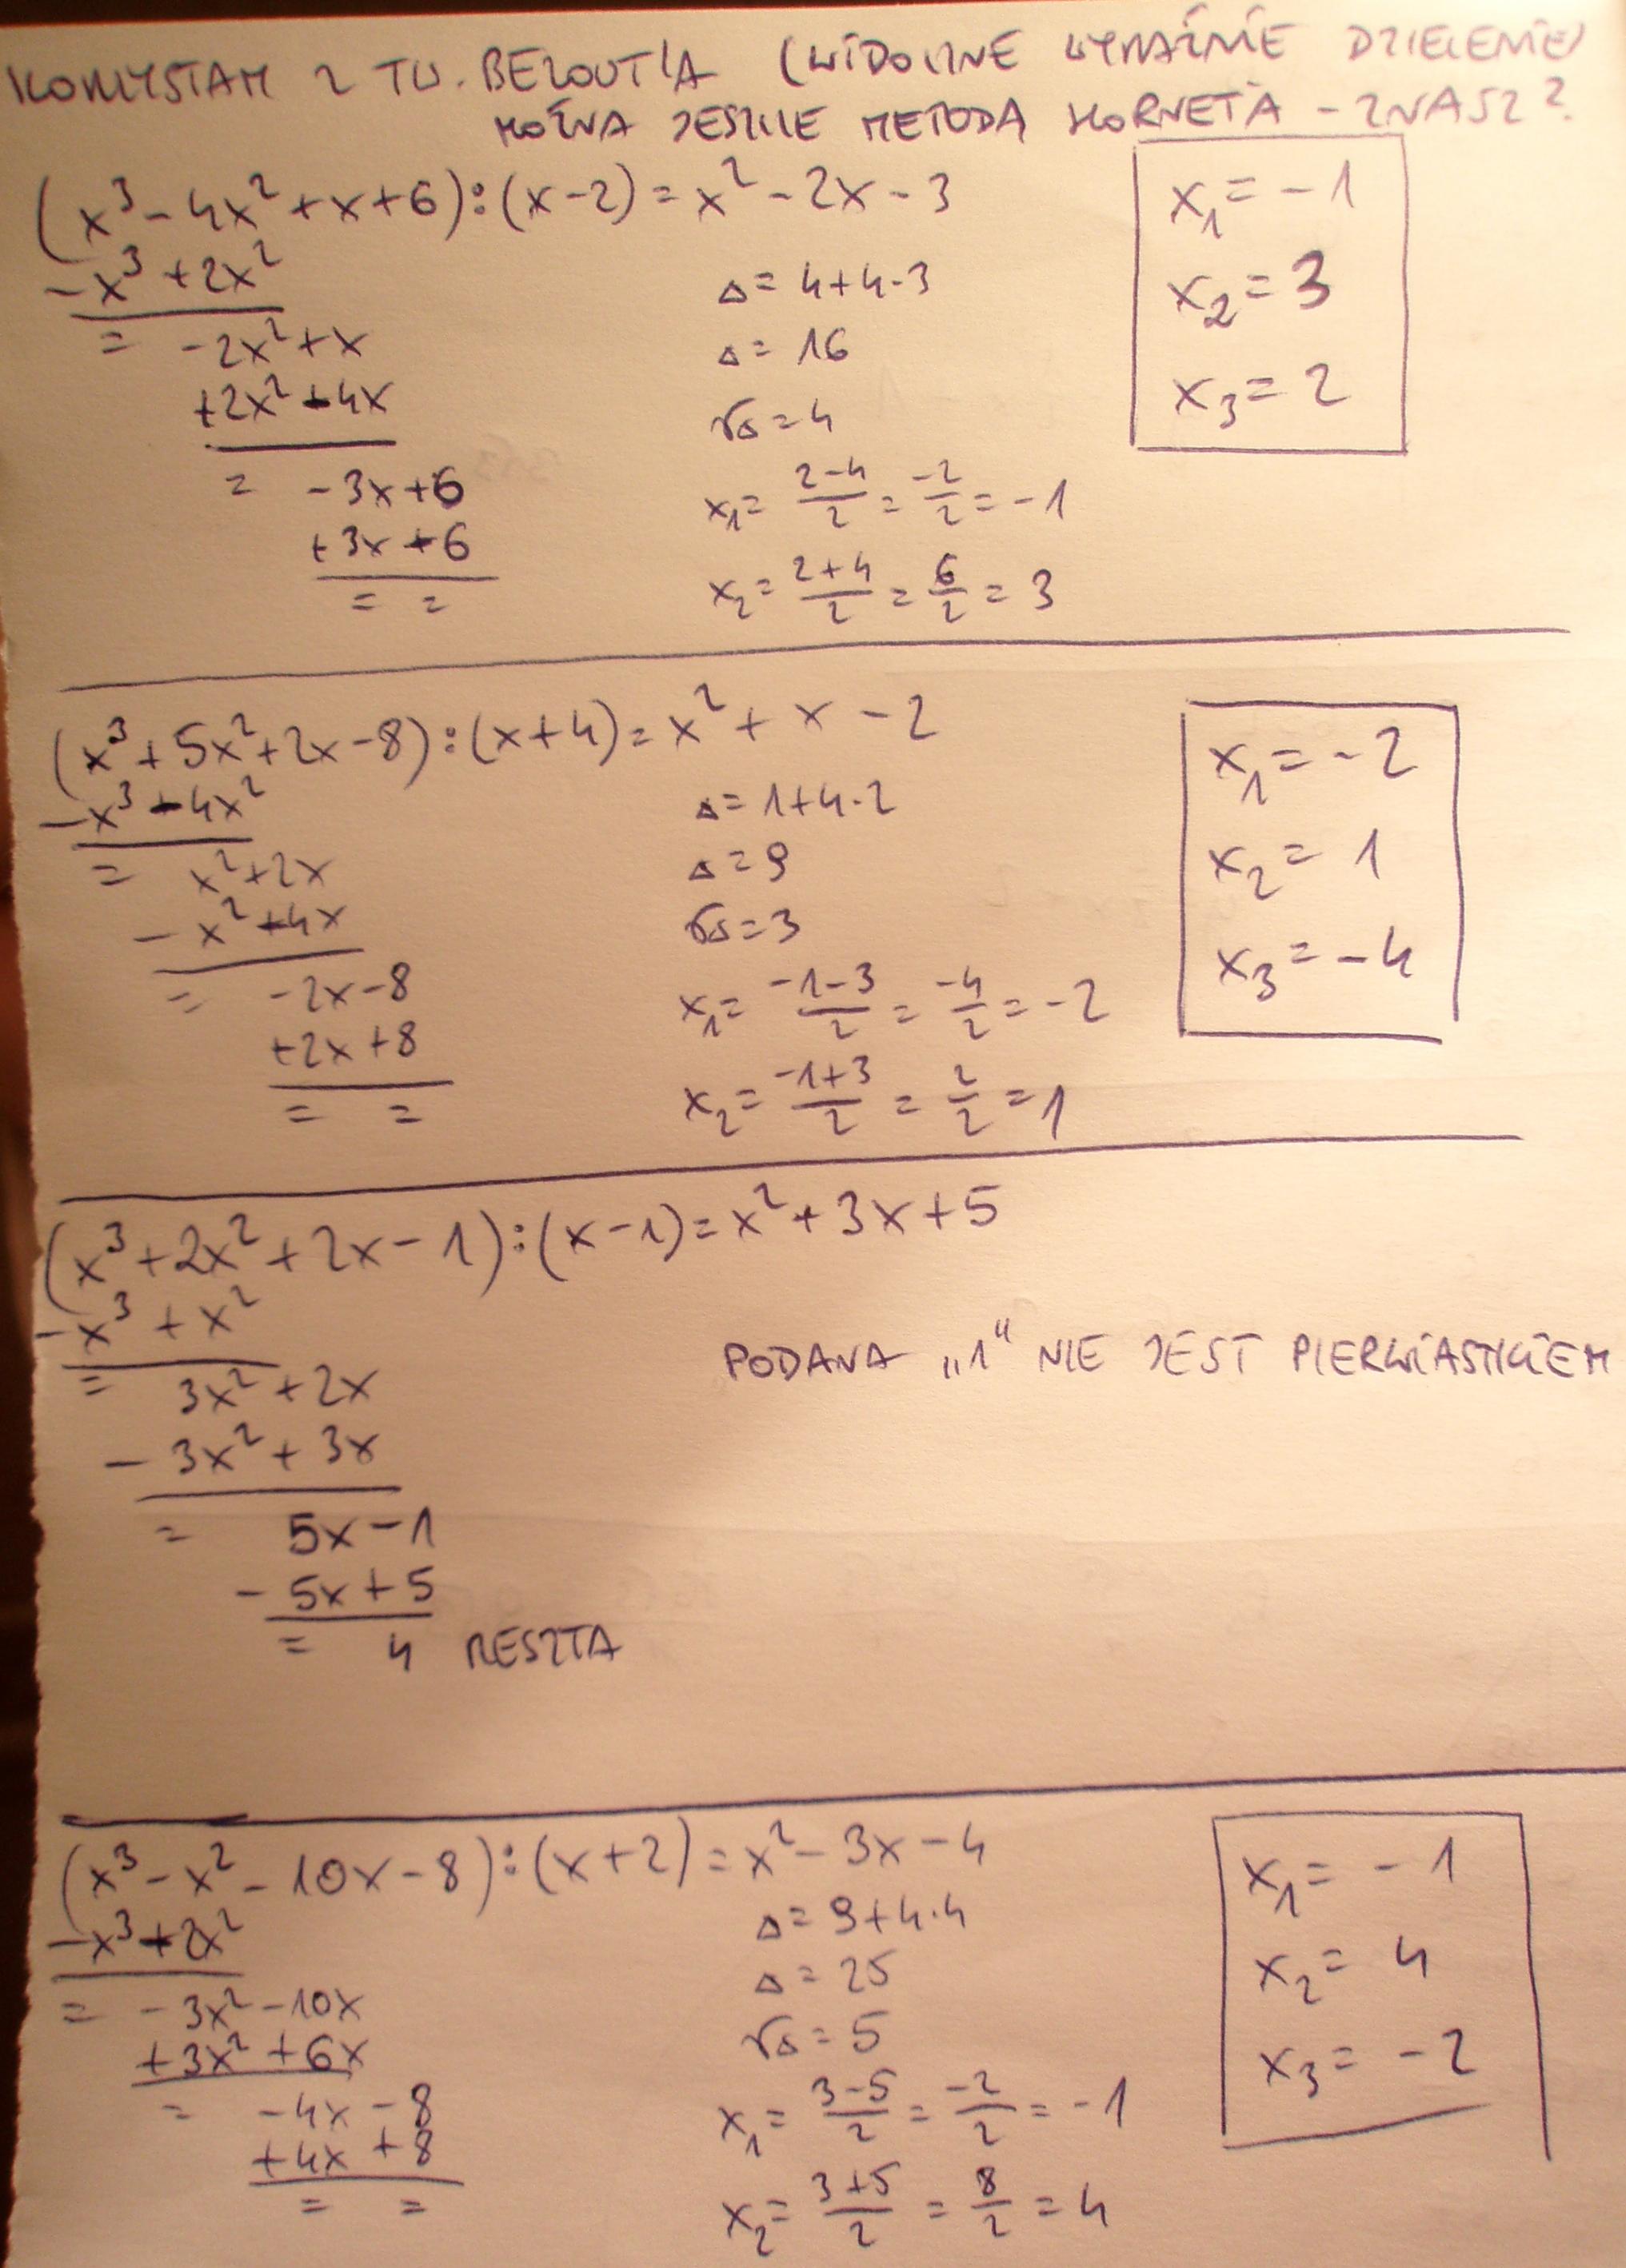 KORZYSTAM Z TW. BEZOUT'A (WIDOCZNE WYRAŹNIE DZIELENIE)
MOŻNA JESZCZE METODĄ HORNERA - ZNASZ?
(x³ - 4x² + x + 6) : (x - 2) = x² - 2x - 3
-x³ + 2x²
= -2x² + x
+2x² - 4x
= -3x + 6
+3x - 6
= =
Δ = 4 + 4·3
Δ = 16
√Δ = 4
x₁ = (2-4)/2 = -2/2 = -1
x₂ = (2+4)/2 = 6/2 = 3
x₁ = -1
x₂ = 3
x₃ = 2
(x³ + 5x² + 2x - 8) : (x + 4) = x² + x - 2
-x³ - 4x²
= x² + 2x
- x² - 4x
= -2x - 8
+2x + 8
= =
Δ = 1 + 4·2
Δ = 9
√Δ = 3
x₁ = (-1-3)/2 = -4/2 = -2
x₂ = (-1+3)/2 = 2/2 = 1
x₁ = -2
x₂ = 1
x₃ = -4
(x³ + 2x² + 2x - 1) : (x - 1) = x² + 3x + 5
-x³ + x²
= 3x² + 2x
- 3x² + 3x
= 5x - 1
- 5x + 5
= 4 RESZTA
PODANA „1" NIE JEST PIERWIASTKIEM
(x³ - x² - 10x - 8) : (x + 2) = x² - 3x - 4
-x³ - 2x²
= -3x² - 10x
+3x² + 6x
= -4x - 8
+4x + 8
= =
Δ = 9 + 4·4
Δ = 25
√Δ = 5
x₁ = (3-5)/2 = -2/2 = -1
x₂ = (3+5)/2 = 8/2 = 4
x₁ = -1
x₂ = 4
x₃ = -2